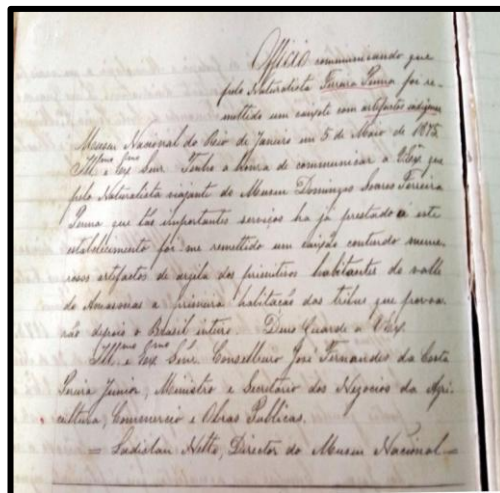 Officio communicando que
pelo Naturalista Ferreira Penna foi re-
mettido um caixote com artefactos indigenas
Museu Nacional do Rio de Janeiro em 5 de Maio de 1875
Illmo e Exmo Senr. Tenho a honra de communicar a VExa que
pelo Naturalista viajante do Museu Domingos Soares Ferreira
Penna que tão importantes serviços ha já prestado a este
estabelecimento foi-me remettido um caixão contendo nume-
rosos artefactos de argila dos primitivos habitantes do valle
do Amazonas a primeira habitação das tribus que povoa-
rão depois o Brasil inteiro. Deus Guarde a VExa.
Illmo e Exmo Senr. Conselheiro José Fernandes da Costa
Pereira Junior, Ministro e Secretario dos Negocios da Agri-
cultura, Commercio e Obras Publicas.
= Ladislau Netto, Director do Museu Nacional =